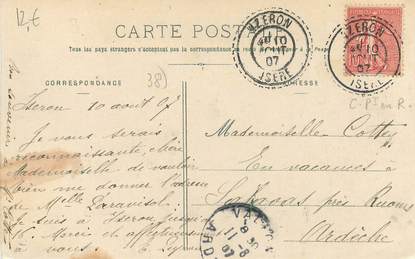 12,€
CARTE POSTALE
Tous les pays étrangers n'acceptent pas la correspondance
CORRESPONDANCE
ADRESSE
38)
IZERON
10
AOUT
07
ISERE
IZERON
10
AOUT
07
ISERE
C. Pt en R.
Izeron 10 août 07
Je vous serais
reconnaissante, chère
Mademoiselle de vouloir
bien me donner l'adresse
de Melle Paravisol.
Je suis à Izeron jusqu'au
16. Merci et affectueusement
à vous.
Mademoiselle Cottey
En vacances à
près Ruoms
Ardèche
11 -8
07
ARD